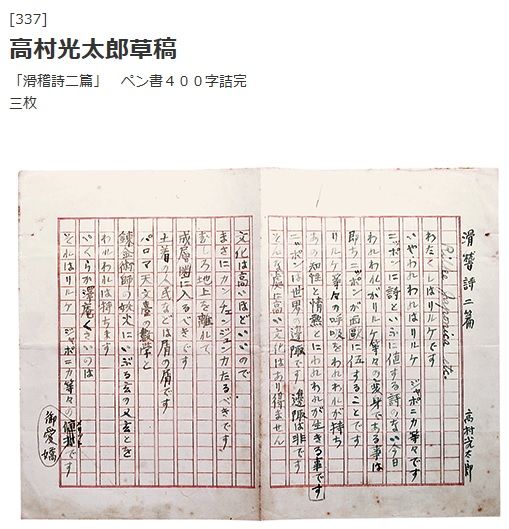 [337]
高村光太郎草稿
「滑稽詩二篇」　ペン書４００字詰完
三枚
滑稽詩二篇
高村光太郎
Rilke Japonica etc.
わたくしはリルケです
いやわれわれはリルケ　ジャポニカ等々です
ニッポンに詩といふに値する詩のない今日
われわれがリルケ等々の変身である事は
即ちニッポンが西欧に伍することです
リルケ等々の呼吸をわれわれが持ち
ある知性と情熱とにわれわれが生きる事です
ニッポンは世界の辺陬です　辺陬は非です
こんな処に高い文化はあり得ません
文化は高いほどいいので
まさにカンチェンジュンガたるべきです
むしろ地上を離れて
成層圏に入るべきです
土着の人民などは眉の眉です
パロマ天文台の数学と
錬金術師の妖火にいぶる玄の又玄とを
われわれは持ちます
いくらか沢庵くさいのは
それはリルケ　ジャポニカ等々の
です
御愛嬌